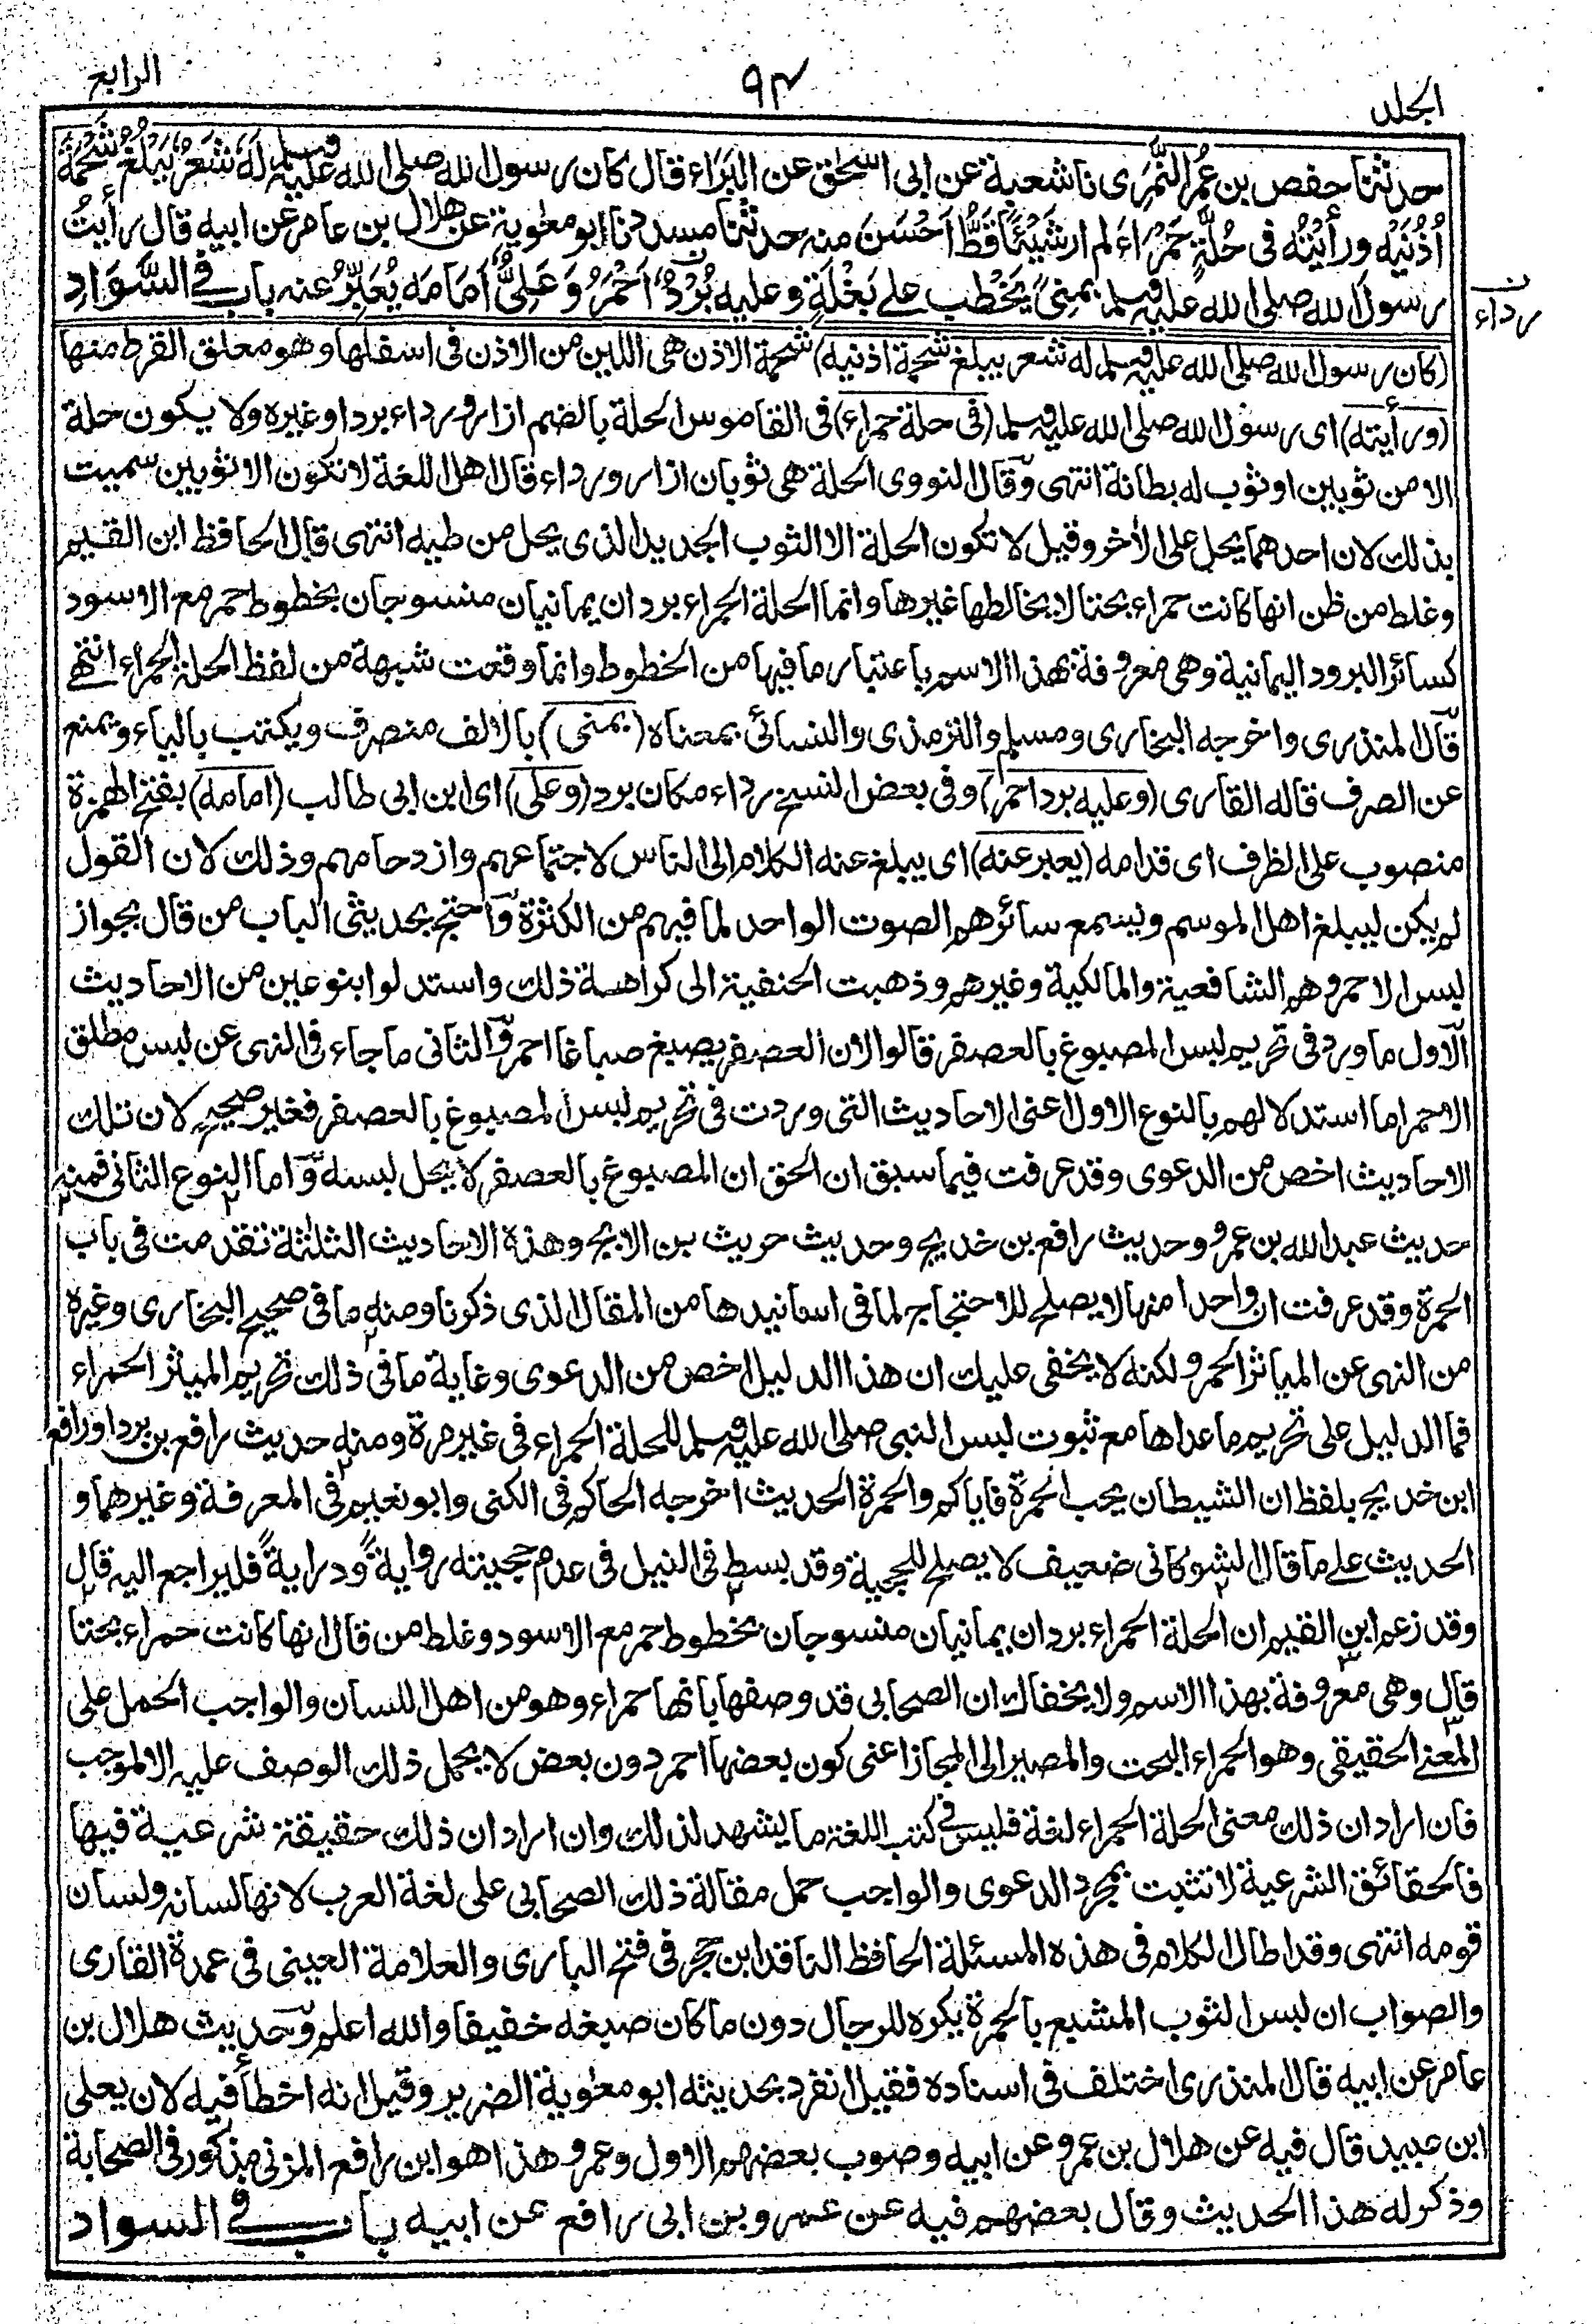 الجلد
٩٤
الرابع
حدثنا حفص بن عُمَر النَّمَرِى نا شعبة عن ابى اسحٰق عن البَرَاء قال كان رسول الله صلى الله عليه وسلم له شَعْرٌ يَبْلُغُ شَحْمَةَ
اُذُنَيْهِ ورأيْتُه فى حُلَّةٍ حَمْرَاءَ لم ارشَيْئًا قَطُّ اَحْسَنَ منه حدثنا مسدد نا ابو معٰوية عن هلال بن عامر عن ابيه قال رأيتُ
رسولَ الله صلى الله عليه وسلم بمِنىً يَخْطُب على بَغْلَةٍ وعليه بُرْدٌ اَحْمَرُ وَعَلِىٌّ اَمَامَه يُعَبِّرُ عنه باب فى السَّوَادِ
ن
رداء
(كان رسول الله صلى الله عليه وسلم له شعر يبلغ شحمة اذنيه) شحمة الاذن هى اللين من الاذن فى اسفلها وهو معلق القرط منها
(ورأيته) اى رسول الله صلى الله عليه وسلم (فى حلة حمراء) فى القاموس الحلة بالضم ازار ورداء برد او غيره ولا يكون حلة
الا من ثوبين او ثوب له بطانة انتهى وقال النووى الحلة هى ثوبان ازار ورداء قال اهل اللغة لا تكون الا ثوبين سميت
بذلك لان احدهما يحل على الآخر وقيل لا تكون الحلة الا الثوب الجديد الذى يحل من طيه انتهى قال الحافظ ابن القيم
وغلط من ظن انها كانت حمراء بحتا لا يخالطها غيرها وانما الحلة الحمراء بردان يمانيان منسوجان بخطوط حمر مع الاسود
كسائر البرود اليمانية وهى معروفة بهذا الاسم باعتبار ما فيها من الخطوط وانما وقعت شبهة من لفظ الحلة الحمراء انتهى
قال المنذرى واخرجه البخارى ومسلم والترمذى والنسائى بمعناه (بمنى) بالالف منصرف ويكتب بالياء ويمنع
عن الصرف قاله القارى (وعليه برد احمر) وفى بعض النسخ رداء مكان برد (وعلى) اى ابن ابى طالب (امامه) بفتح الهمزة
منصوب على الظرف اى قدامه (يعبر عنه) اى يبلغ عنه الكلام الى الناس لاجتماعهم وازدحامهم وذلك لان القول
لم يكن ليبلغ اهل الموسم ويسمع سائرهم الصوت الواحد لما فيهم من الكثرة واحتج بحديثى الباب من قال بجواز
لبس الاحمر وهم الشافعية والمالكية وغيرهم وذهبت الحنفية الى كراهة ذلك واستدلوا بنوعين من الاحاديث
الاول ما ورد فى تحريم لبس المصبوغ بالعصفر قالوا لان العصفر يصبغ صباغا احمر والثانى ما جاء فى النهى عن لبس مطلق
الاحمر اما استدلالهم بالنوع الاول اعنى الاحاديث التى وردت فى تحريم لبس المصبوغ بالعصفر فغير صحيح لان تلك
الاحاديث اخص من الدعوى وقد عرفت فيما سبق ان الحق ان المصبوغ بالعصفر لا يحل لبسه واما النوع الثانى فمنه
حديث عبد الله بن عمرو وحديث رافع بن خديج وحديث حريث بن الابج وهذه الاحاديث الثلثة تقدمت فى باب
الحمرة وقد عرفت ان واحدا منها لا يصلح للاحتجاج لما فى اسانيدها من المقال الذى ذكرنا ومنه ما فى صحيح البخارى وغيره
من النهى عن المياثر الحمر ولكنه لا يخفى عليك ان هذا الدليل اخص من الدعوى وغاية ما فى ذلك تحريم الميثرا لحمراء
فما الدليل على تحريم ما عداها مع ثبوت لبس النبى صلى الله عليه وسلم للحلة الحمراء فى غير مرة ومنه حديث رافع بن برد او رافع
ابن خديج بلفظ ان الشيطان يحب الحمرة فاياكم والحمرة الحديث اخرجه الحاكم فى الكنى وابو نعيم فى المعرفة وغيرهما و
الحديث على ما قال الشوكانى ضعيف لا يصلح للحجية وقد بسط فى النيل فى عدم حجيته روايةً ودرايةً فليراجع اليه قال
وقد زعم ابن القيم ان الحلة الحمراء بردان يمانيان منسوجان بخطوط حمر مع الاسود وغلط من قال انها كانت حمراء بحتا
قال وهى معروفة بهذا الاسم ولا يخفاك ان الصحابى قد وصفها بانها حمراء وهو من اهل اللسان والواجب الحمل على
المعنى الحقيقى وهو الحمراء البحت والمصير الى المجاز اعنى كون بعضها احمر دون بعض لا يحمل ذلك الوصف عليه الا لموجب
فان اراد ان ذلك معنى الحلة الحمراء لغة فليس فى كتب اللغة ما يشهد لذلك وان اراد ان ذلك حقيقة شرعية فيها
فالحقائق الشرعية لا تثبت بمجرد الدعوى والواجب حمل مقالة ذلك الصحابى على لغة العرب لانها لسانه ولسان
قومه انتهى وقد اطال الكلام فى هذه المسئلة الحافظ الناقد ابن حجر فى فتح البارى والعلامة العينى فى عمدة القارى
والصواب ان لبس الثوب المشبع بالحمرة يكره للرجال دون ما كان صبغه خفيفا والله اعلم وحديث هلال بن
عامر عن ابيه قال المنذرى اختلف فى اسناده فقيل انفرد بحديثه ابو معٰوية الضرير وقيل انه اخطأ فيه لان يعلى
ابن عبيد قال فيه عن هلال بن عمرو عن ابيه وصوب بعضهم الاول وعمرو هذا هو ابن رافع المزنى مذكور فى الصحابة
وذكر له هذا الحديث وقال بعضهم فيه عن عمرو بن ابى رافع عن ابيه باب فى السواد